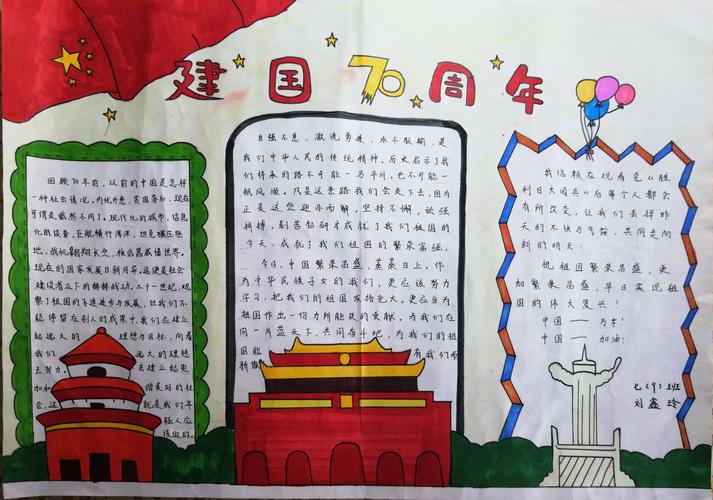 建国70周年
回顾70年前,以前的中国是怎样
一种社会情况,内忧外患,贫困落后,现在
可谓是截然不同了。现代化的城市,信息
化的设备,巨舰横行海洋,坦克碾压陆
地,战机翱翔长空,核武器威慑世界。
现在的国家发展日新月异,这便是社会
建设者立下的赫赫战功。二十一世纪,现
祖国的飞速进步与发展,但我们不
能停留在别人的成果中,我们应建立
起远大的 理想与目标,向着
我们 远大的理想
去努力。 去建立起更
加和 谐美好的社
会,这 就是我们年
轻人应
该做的。
自强不息,激流勇进,永不服输,是
我们中华人民的传统精神,历史启示了我
们将来的路不可能一马平川,也不可能一
帆风顺。凡是这条路我们会走下去,因为
正是这些迎亦而解,坚持不懈,顽强
拼搏,刻苦钻研才成就了我们祖国的
今天,成就了我们祖国的繁荣富强。
今日,中国繁荣昌盛,蒸蒸日上。作
为中华民族子女的我们,更应该努力
学习,把我们的祖国发扬光大。更应当为
祖国作出一份力所能及的贡献。为我们在
同一片蓝天下,共同奋斗吧,为我们的祖
国能
有我们而
我信赖在观看完《胜
利日大阅兵》后每个人都会
有所改变,让我们丢掉昨
天的不快与气馁,共同走向
新的明天!
祝祖国繁荣昌盛,更
加繁荣昌盛,早日实现祖
国的伟大复兴!
中国——万岁!
中国——加油!
七(9)班
刘鑫玲